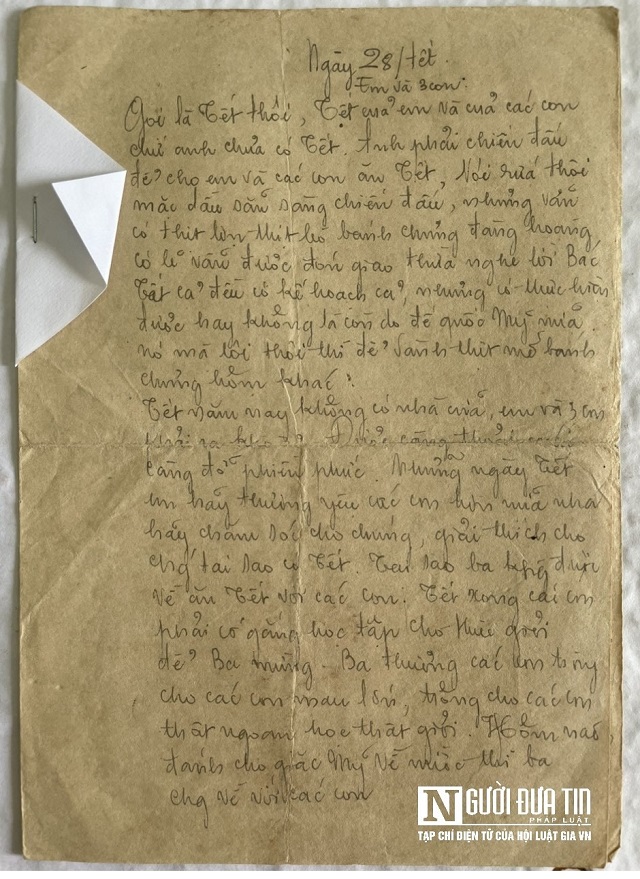 Ngày 28/tết.
Em và 3 con.
Gọi là Tết thôi, Tết của em và của các con
chứ anh chưa có Tết. Anh phải chiến đấu
để cho em và các con ăn Tết, Nói rứa thôi
mặc dầu sẵn sàng chiến đấu, nhưng vẫn
có thịt lợn thịt bò bánh chưng đàng hoàng
có lẽ vẫn được đón giao thừa nghe lời Bác
Tết cả đều có kế hoạch cả, nhưng có thực hiện
được hay không là còn do đế quốc Mỹ nữa.
nó mà lôi thôi thì để dành thịt mỡ bánh
chưng hôm khác.
Tết năm nay không có nhà cửa, em và 3 con
càng đỡ phiền phức. Những ngày Tết
em hãy thương yêu các con hơn nữa nha
hãy chăm sóc cho chúng, giải thích cho
chg tại sao có Tết. Tại sao ba không được
về ăn Tết với các con. Tết xong các con
phải cố gắng học tập cho thiệc giỏi
để Ba mừng. Ba thương các con trông
cho các con mau lớn, trông cho các con
thật ngoan học thật giỏi. Hôm nào
đánh cho giặc Mỹ về nước thì ba
chg về với các con
NGƯỜI ĐƯA TIN
PHÁP LUẬT
TẠP CHÍ ĐIỆN TỬ CỦA HỘI LUẬT GIA VN